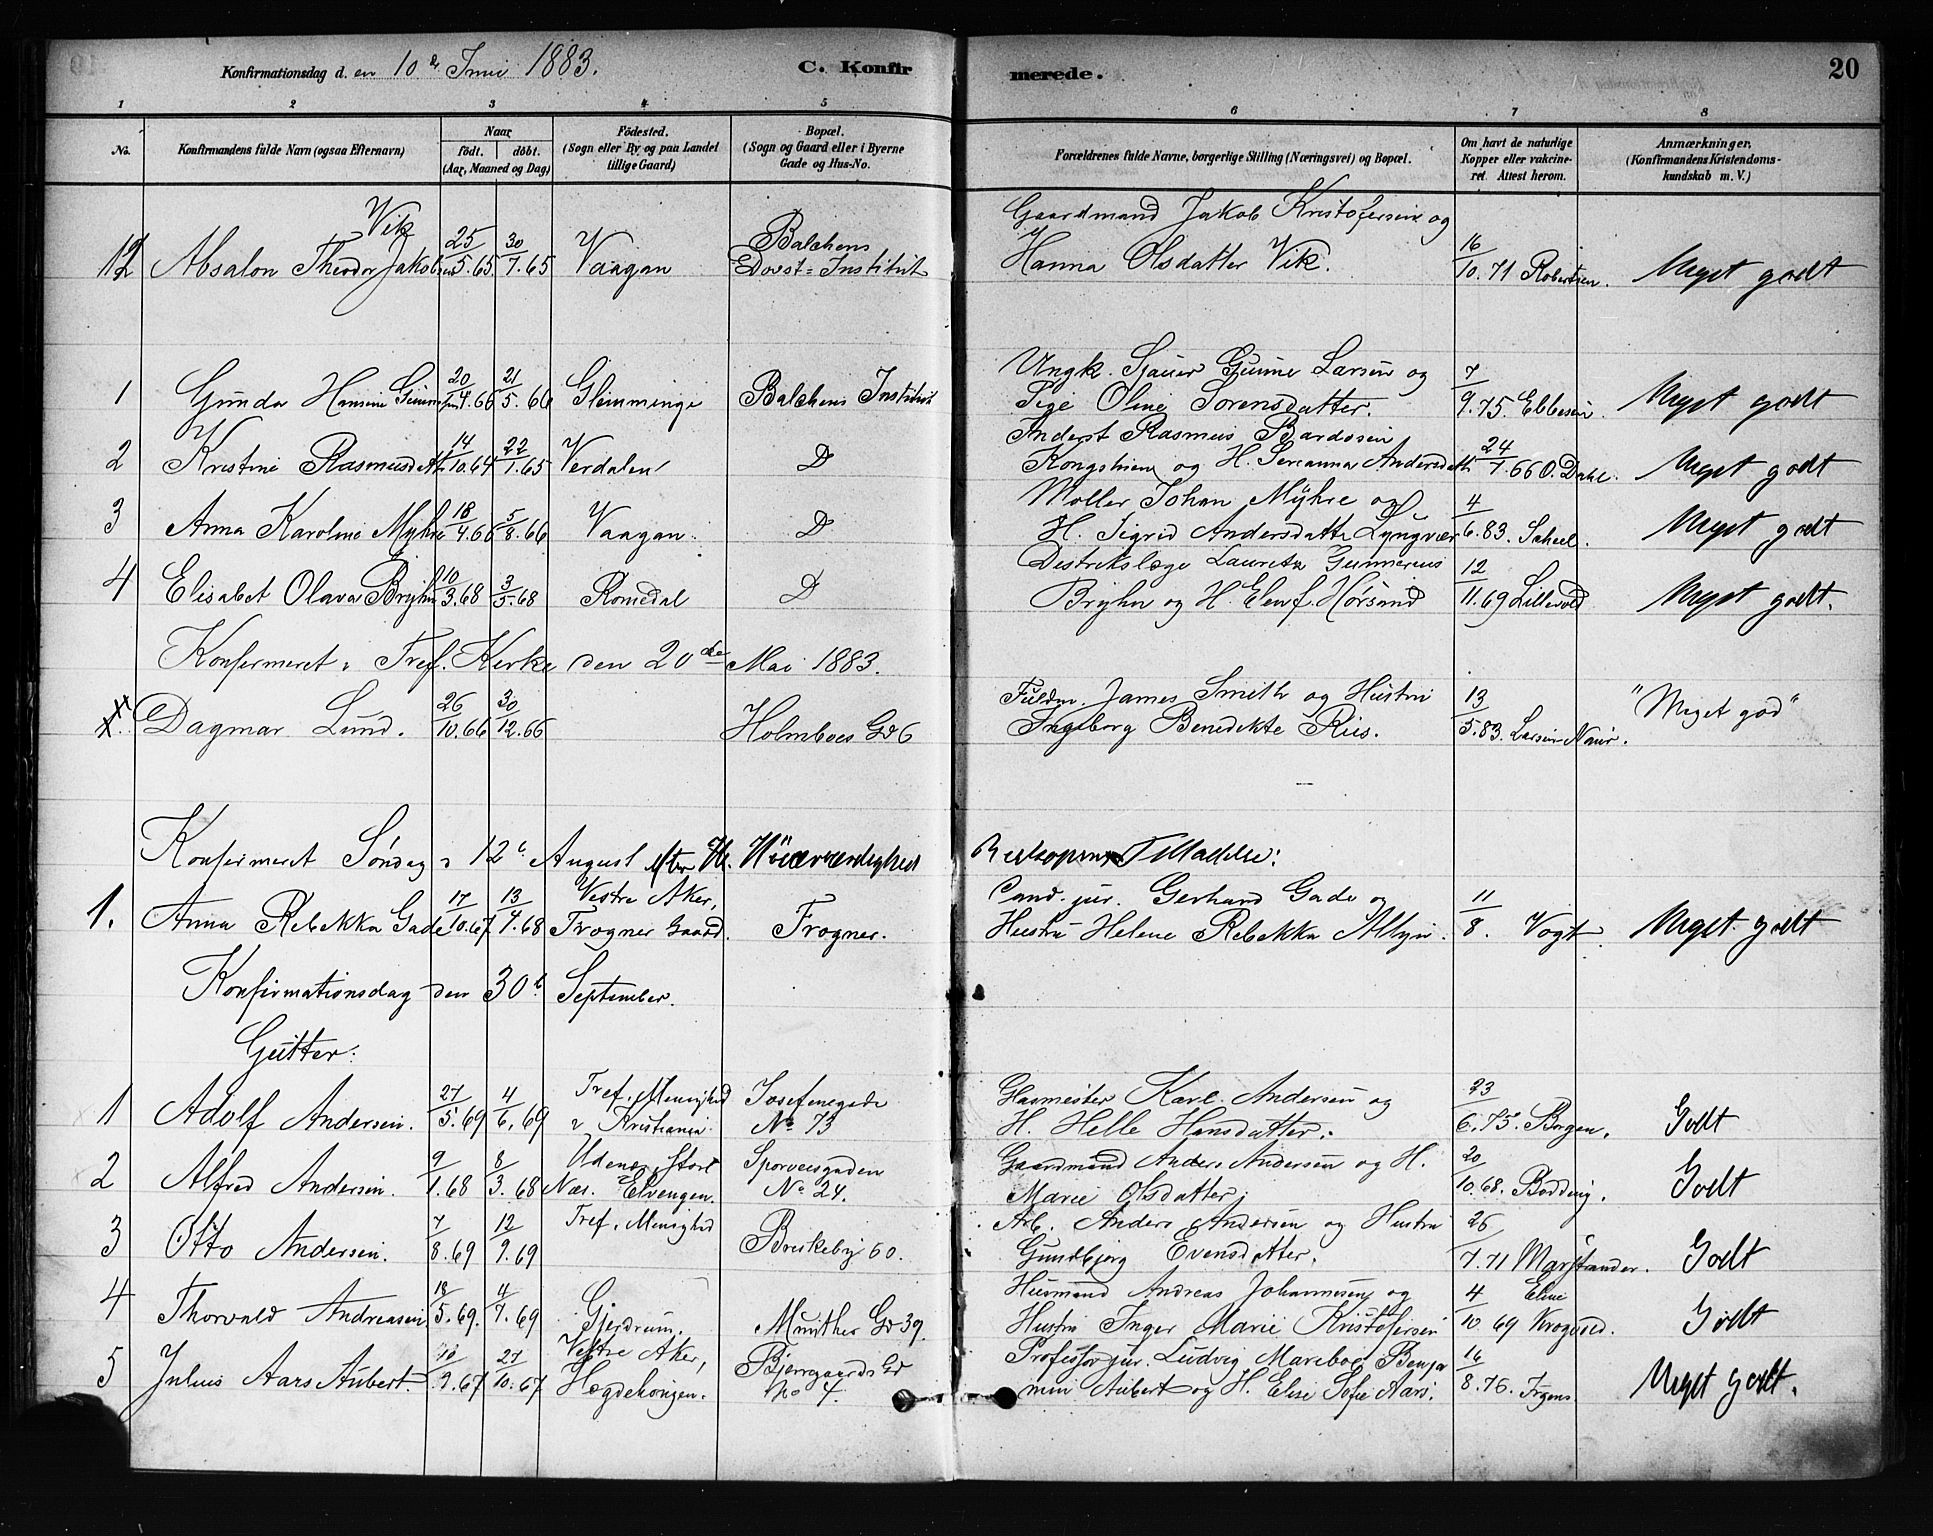 Konfirmationsdag d. en 10de Juni 1883. C. Konfirmerede. 20
1 2 3 4 5 6 7 8
No. Konfirmandens fulde Navn (ogsaa Efternavn) Naar født. døbt. (Aar, Maaned og Dag) Fødested. (Sogn eller By og paa Landet tillige Gaard) Bopæl. (Sogn og Gaard eller i Byerne Gade og Hus-No. Forældrenes fulde Navne, borgerlige Stilling (Næringsvei) og Bopæl. Om havt de naturlige Kopper eller vakcineret. Attest herom. Anmærkninger. (Konfirmandens Kristendomskundskab m. V.)
Vik Gaardmand Jakob Kristofersen og
12 Absalon Theodor Jakobsen 25/5.65 30/7.65 Vaagan Balchens Døvst=Institut Hanna Olsdatter Vik. 16/10.71 Robertsen. Meget godt
Ungk. Sjauer Gunne Larsen og
1 Gunda Hansine Gunnesen 20/4.66 21/5.66 Glemminge Balchens Institut Pige Oline Sorensdatter. 7/9.75. Ebbesen. Meget godt
Inderst Rasmus Bardosen
2 Kristine Rasmusdatt 14/10.64 22/1.65 Verdalen D Kongshiem og H. Sereanna Andersdatt 24/7.66 O. Dahl. Meget godt
Møller Johan Myhre og
3 Anna Karoline Myhre 18/4.66 5/8.66 Vaagan. D H. Sigrid Andersdatte Lyngvær 4/6.83. Scheel. Meget godt
Destrikslæge Lauretz Gunnerius
4 Elisabet Olava Bryhn 10/3.68 3/5.68 Romedal D Bryhn og H. Elen f. Hørsand 12/11.69 Lillevold Meget godt.
Konfirmeret i Tref. Kirke den 20de Mai 1883.
Fuldm. James Smith og Hustru
Dagmar Lund. 26/10.66 30/12.66 Holmboes Gd 6 Ingeborg Benedikte Riis. 13/5.83. Larsen Naur. "Meget god"
Konfirmeret Søndag d. 12te August efter H. Høiærværdighed Biskopens Tilladelse:
Vestre Aker, Cand. jur. Gerhard Gade og
1. Anna Rebekka Gade 17/10.67 13/4.68 Frogner Gaard. Frogner. Hustru Helene Rebekka Allyn. 11/8. Vogt. Meget godt
Konfirmationsdag den 30te September.
Gutter:
Tref. Menighed Josefinegade Glarmester Karl Andersen og
1 Adolf Andersen. 27/5.69 4/6.69 i Kristiania. No 73 H. Helle Hansdatter. 23/6.75. Borgen. Godt
Udenæs, Stort Sporveisgaden Gaardmand Anders Andersen og H.
2 Alfred Andersen. 9/1.68 8/3.68 Næs. Elvengen. No 24. Marie Olsdatter. 20/10.68. Bødding. Godt
Tref. Menighed Arb. Anders Andersen og Hustru
3 Otto Andersen. 7/8.69 12/9.69 Briskeby 60. Gundbjørg Evensdatter. 26/7.71 Marstrander. Godt
Husmand Andreas Johannesen og
4 Thorvald Andreasen. 18/5.69. 4/7.69 Gjerdrum. Munthes Gd 39. Hustru Inger Marie Kristofersen 4/10 69 Krogsrud. Godt
Vestre Aker, Bjerregaards Gd Professor jur. Ludvig Mariboe Benja
5 Julius Aars Aubert. 18/9.67 27/10.67 Hægdehougen. No 4. min Aubert og H. Elise Sofie Aars. 16/8.76. Irgens. Meget godt.